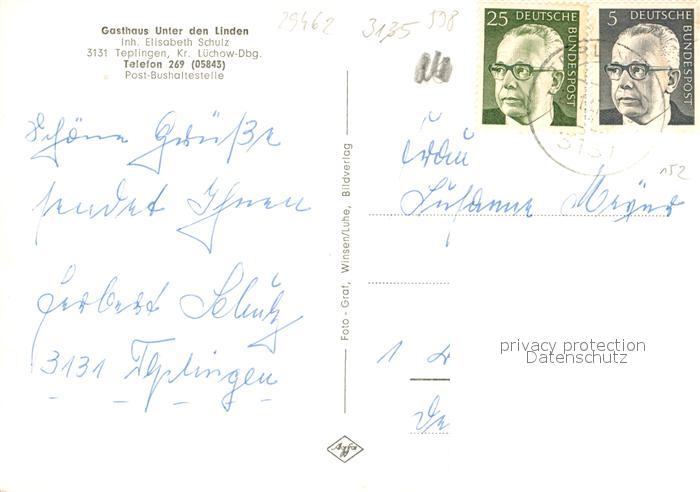 Gasthaus Unter den Linden
Inh. Elisabeth Schulz
3131 Teplingen, Kr. Lüchow-Dbg.
Telefon 269 (05843)
Post-Bushaltestelle
29462
3135
598
25 DEUTSCHE BUNDESPOST
5 DEUTSCHE BUNDESPOST
3131
152
Schöne Grüße
sendet Ihnen
Herbert Schulz
3131 Teplingen
Foto - Graf, Winsen/Luhe, Bildverlag
Agfa
Frau
Susanne Meyer
1
privacy protection
Datenschutz